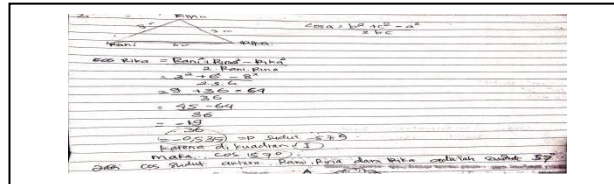 2.
Rina
cos a = b² + c² - a²
2 bc
8 m
3 m
Rani
6 m
Rika
cos Rika = Rani² + Rina² - Rika²
2. Rani. Rina
= 3² + 6² - 8²
2.3.6
= 9 + 36 - 64
36
= 45 - 64
36
= -19
36
Karena di kuadran (I)
maka cos 157°.
cos sudut antara Rani, Rina dan Rika adalah sudut 57°